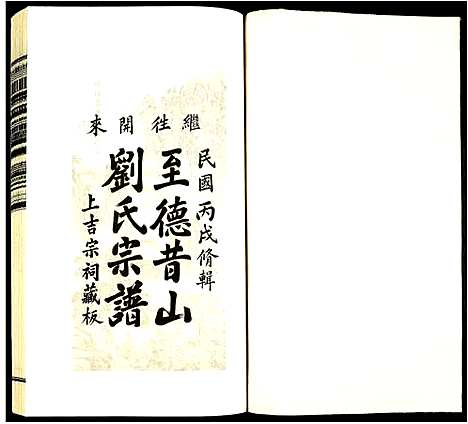 繼徃開來
民國丙戌脩輯
至德昔山
劉氏宗譜
上吉宗祠藏板